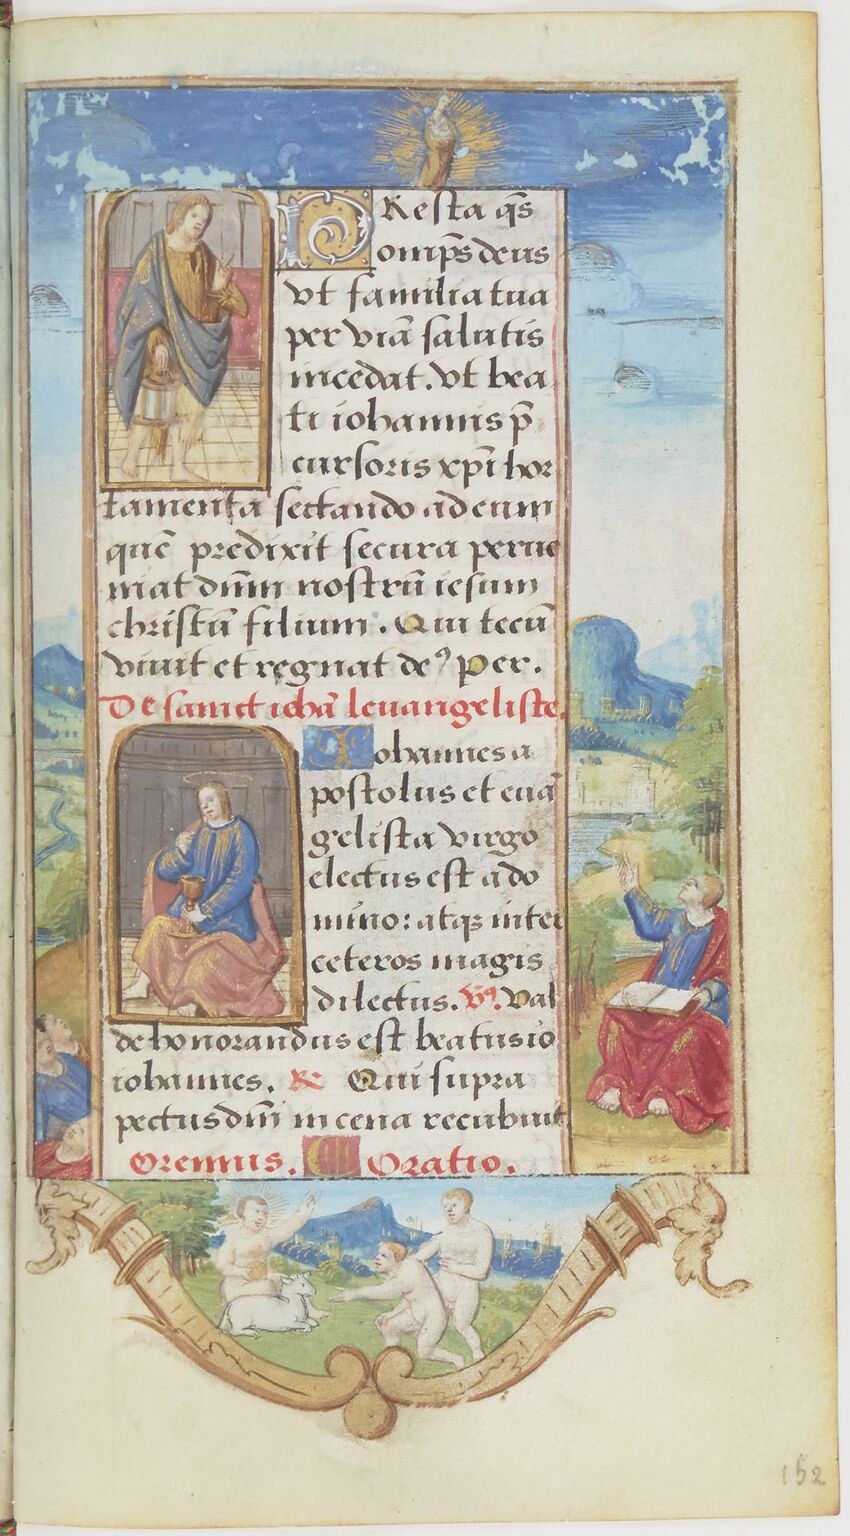 PResta q̄s
omp̄s deus
vt familia tua
per viā salutis
incedat. vt bea
ti iohannis p̄
cursoris xp̄i hor
tamenta sectando ad eum
quē predixit secura perue
niat dn̄m nostrū iesum
christū filium. Qui tecū
viuit et regnat deꝰ Per.
De sanct iohā leuangeliste.
Iohannes a
postolus et euā
gelista virgo
electus est a do
mino: atqꝫ inter
ceteros magis
dilectus. Vꝰ. Val
de honorandus est beatus io
iohannes. ℟ Qui supra
pectus dn̄i in cena recubuit
Oremus. Oratio.
152